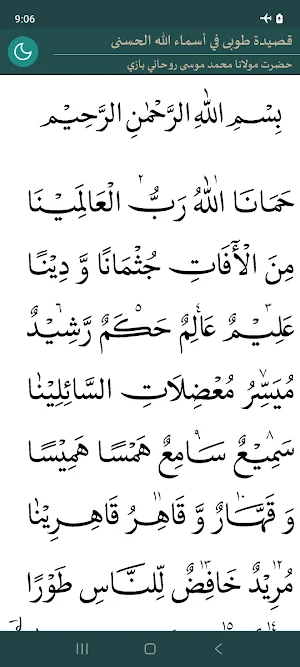 9:06
قصيدة طوبى في أسماء الله الحسنى
حضرت مولانا محمد موسى روحاني بازي
بِسْمِ اللّٰهِ الرَّحْمٰنِ الرَّحِيْمِ
حَمَانَا اللّٰهُ رَبُّ ٢ الْعَالَمِيْنَا
مِنَ الْاٰفَاتِ جُثْمَانًا وَّ دِيْنًا
عَلِيْمٌ ٣ عَالِمٌ ٤ حَكَمٌ ٥ رَّشِيْدٌ ٦
مُيَسِّرُ ٧ مُعْضِلَاتِ السَّائِلِيْنَا
سَمِيْعٌ ٨ سَامِعٌ ٩ هَمْسًا هَمِيْسًا
وَ قَهَّارٌ ١٠ وَّ قَاهِرُ ١١ قَاهِرِيْنَا
مُرِيْدٌ ١٢ خَافِضٌ ١٣ لِّلنَّاسِ طَوْرًا
١٤ ١٥